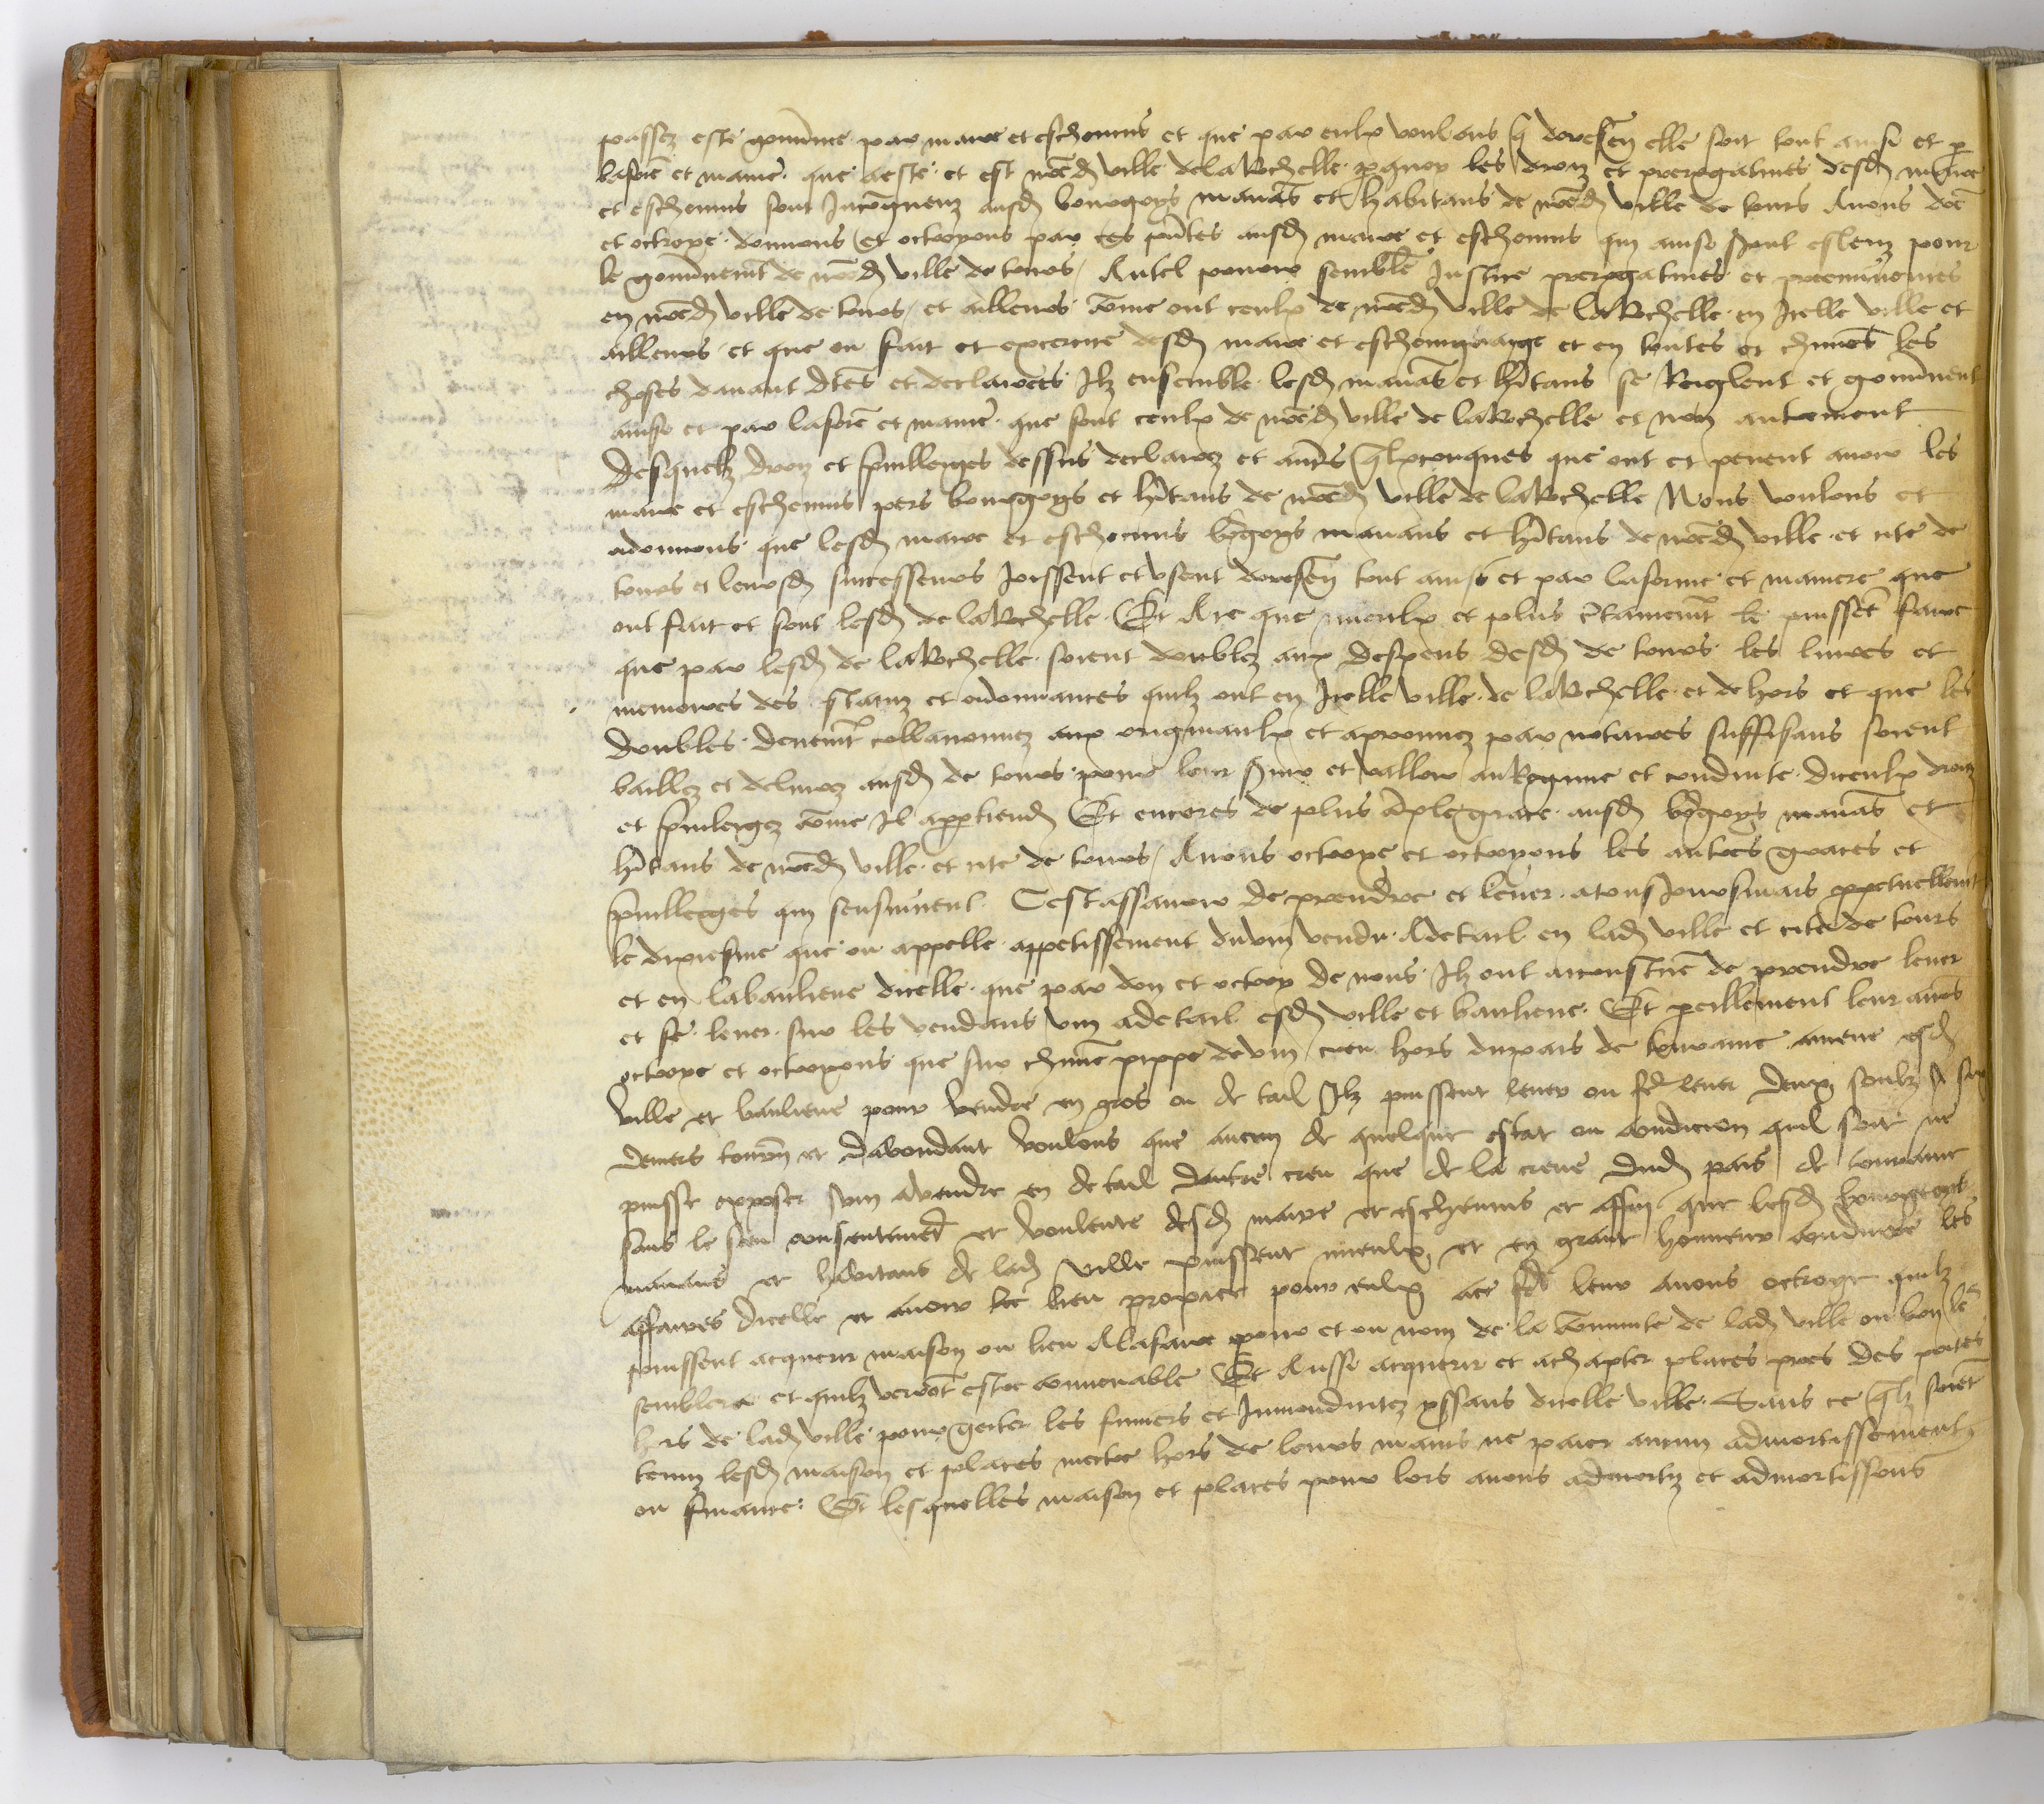 passez este gouvnee par maire et eschevins et que par eulx voulons q doresen elle soit tout ainsi et p
la forē et manie que a este et est nredē ville de la Rochelle pquoy les droiz et prerogatives desd maire
et eschevins sont Incōgneuz ausd bourgoys manās et habitans de nred ville de tours Avons doē
et octroye donnons et octroyons par ces pntes ausd maire et eschevins qui ainsi sont esleuz pour
le gouvnemt de nred ville de tours Autel pouoir semblē Justice prerogatives et preeminences
en nred ville de tours et ailleurs cōme ont ceulx de nred ville de la Rochelle en Icelle ville et
ailleurs et que on fait et excercite desd maire et eschevinaige et en toutes et chunes les
choses davant dtes et declairees Ilz ensemble lesd manās et hitans se Reiglent et gouvnent
ainsi et par la forē et manie que font ceulx de nred ville de la Rochelle et non autrement
Desquelz droiz et pvilleiges dessus declairez et autrs qlxconques que ont et pevent avoir les
maire et eschevins pers bourgoys et hitans de nred ville de la Rochelle Nous voulons et
ordonnons que lesd maire et eschevins bgoys manans et hitans de nred ville et cite de
tours et leursd successeurs Joissent et usent doresen tout ainsi et par la forme et maniere que
ont fait et font lesd de la Rochelle Et Ace que mieulx et plus ctainemt le puissēt faire
que par lesd de la Rochelle soient doublez aux despens desd de tours les livres et
memoires des statuz et ordonnances quilz ont en Icelle ville de la Rochelle et dehors et que les
doubles deuemt collacionnez aux originaulx et aprouvez par notaires suffisans soient
baillez et delivrez ausd de tours pour leur svir et valloir au Regime et conduite diceulx droiz
et pvileigez cōme Il appartiendr Et encores de plus āple grace ausd bgoys manās et
hitans de nred ville et cite de tours Avons octroye et octroyons les autres graces et
pvilleges qui sensuivent Cestassavoir de prendre et lever a tousjoursmais ppetuellemt
le dixiesme que on appelle appetissement du vin vendu Adetail en lad ville et cite de tours
et en la banlieue dicelle que par don et octroy de nous Ilz ont acoustue de prendre lever
et fe lever sur les vendans vin adetail esd ville et banlieue Et peillement leur avōs
octroye et octroyons que sur chūne pippe de vin creu hors du pais de touraine amene esd
ville et banlieue pour vendre en gros ou detail Ilz puissent lever ou fe lever deux soulz six
deniers tourn et davondant voulons que aucun de quelque estat ou condicion quil soit ne
puisse exposer vin Avendre en detail dautre creu que de la creue dud pais de touraine
sans le sceu consentemēt et voulente desd maire et eschevins et affin que lesd bourgeoys
manans et habitans de lad ville puissent mieulx et en grant honneur conduire les
affaires dicelle et avoir lieu propice pour eulx ace fe leur avons octroye quilz
puissent acquerir maison ou lieu Alafaire pour et ou nom de la cōmunite de lad ville ou bon le
semblera et quilz verrōt estre convenable Et Aussi acquerir et achapter places pres des portes
hors de lad ville pour geiter les fumiers et Immondicitez yssans dicelle ville Sans ce qlz soiēt
tenuz lesd maison et places mectre hors de leurs mains ne paier aucun admortissement
ou finance Et lesquelles maison et places pour lors avons admorty et admortissons